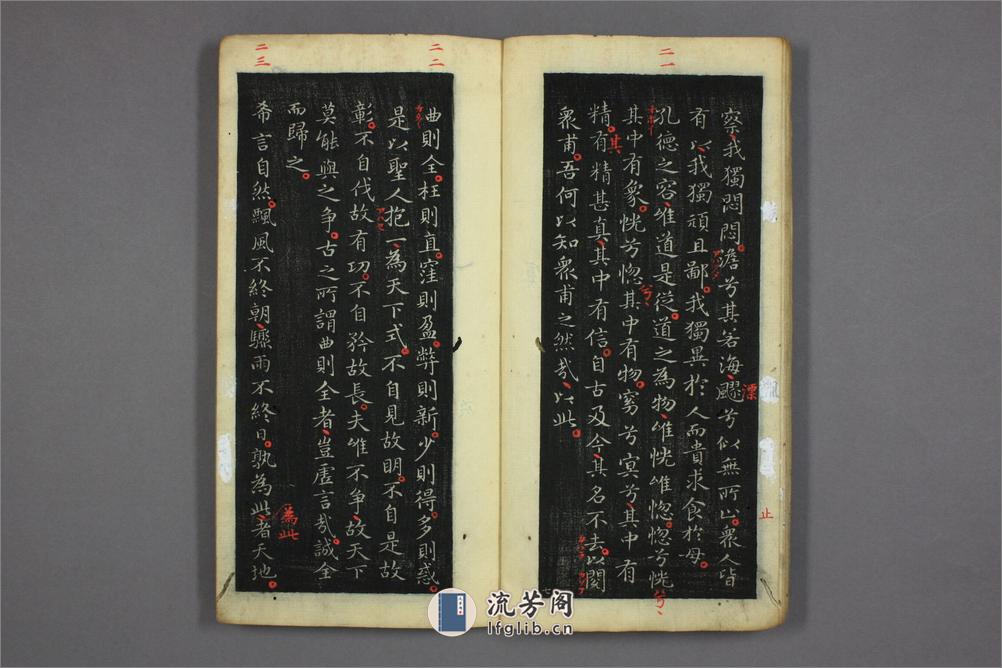 二一
察我獨悶悶澹兮其若海飂兮似無所止衆人皆
有以我獨頑且鄙我獨異於人而貴求食於母
孔德之容唯道是從道之為物唯恍唯惚惚兮恍
其中有象恍兮惚其中有物窈兮冥兮其中有
精有精甚真其中有信自古及今其名不去以閱
衆甫吾何以知衆甫之然哉以此
漂
止
兮
兮
其
二二
曲則全枉則直窪則盈弊則新少則得多則惑
是以聖人抱一為天下式不自見故明不自是故
彰不自伐故有功不自矜故長夫唯不争故天下
莫能與之争古之所謂曲則全者豈虛言哉誠全
而歸之
二三
希言自然飄風不終朝驟雨不終日孰為此者天地
為此
流芳阁
lfglib.cn